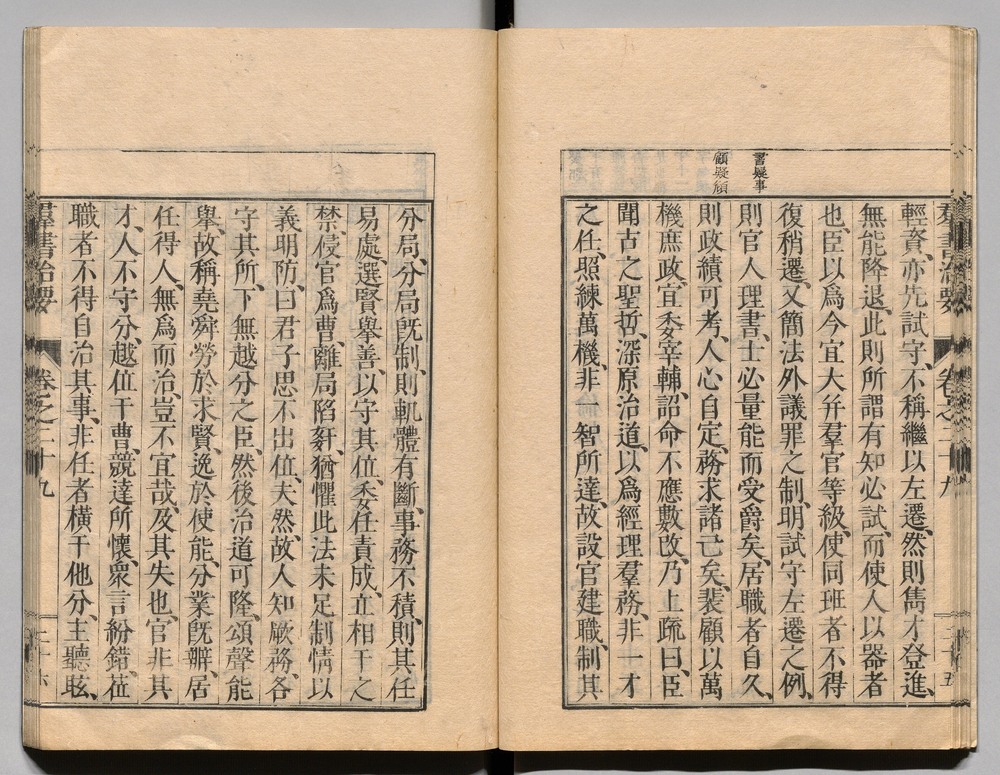 羣書治要 卷之二十九 二十五
輕資、亦先試守、不稱繼以左遷、然則雋才登進、
無能降退、此則所謂有知必試、而使人以器者
也、臣以爲今宜大幷羣官等級、使同班者不得
復稍遷、又簡法外議罪之制、明試守左遷之例、
則官人理書、士必量能而受爵矣、居職者自久、
則政績可考、人心自定、務求諸己矣、裴顧以萬
機庶政、宜委宰輔、詔命不應數改、乃上疏曰、臣
聞古之聖哲、深原治道、以爲經理羣務、非一才
之任、照練萬機、非一智所達、故設官建職、制其
書疑事
顧疑頠
分局、分局旣制、則軌體有斷、事務不積、則其任
易處、選賢舉善、以守其位、委任責成、立相干之
禁、侵官爲曹、離局陷姧、猶懼此法未足制情以
義明防、曰君子思不出位、夫然、故人知厥務、各
守其所、下無越分之臣、然後治道可隆、頌聲能
舉、故稱堯舜勞於求賢、逸於使能、分業旣辨、居
任得人、無爲而治、豈不宜哉、及其失也、官非其
才、人不守分、越位干曹、競達所懷、衆言紛錯、莅
職者不得自治其事、非任者橫干他分、主聽眩、
羣書治要 卷之二十九